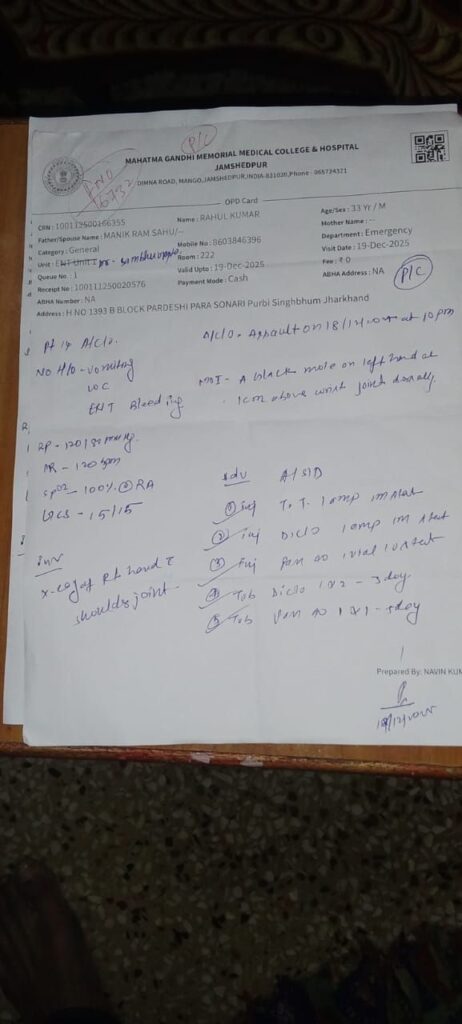 P/C
MAHATMA GANDHI MEMORIAL MEDICAL COLLEGE & HOSPITAL
JAMSHEDPUR
DIMNA ROAD, MANGO, JAMSHEDPUR, INDIA-831020, Phone
OPD Card
CRN : 100112500166355
Name : RAHUL KUMAR
Age/Sex : 33 Yr / M
Father/Spouse Name : MANIK RAM SAHU/--
Mother Name : --
Category : General
Mobile No : 8603846396
Department : Emergency
Unit : ENT Unit I
Room : 222
Visit Date : 19-Dec-2025
Queue No : 1
Valid Upto : 19-Dec-2025
Fee : ₹ 0
Receipt No : 100111250020576
Payment Mode : Cash
ABHA Address : NA
ABHA Number : NA
P/C
Address : H NO 1393 B BLOCK PARDESHI PARA SONARI Purbi Singhbhum Jharkhand
Pt is A/C/O.
A/C/O. Assault on 18/12 at 10pm
NO H/O - vomiting
LOC
ENT Bleeding
MOI - A black mole on left hand at
1cm above wrist joint dorsally.
BP - 120/82 mmHg.
PR - 120 bpm
SpO2 - 100% @ RA
GCS - 15/15
Adv
① Inj T.T. 1 amp IM stat
② Inj Diclo 1 amp IM stat
③ Inj Pan 40 1 vial IV stat
④ Tab Diclo 1x2 - 3 day
⑤ Tab Pan 40 1x1 - 5 day
Inv
X-ray of Rt hand c
shoulder joint.
Prepared By: NAVIN KUM